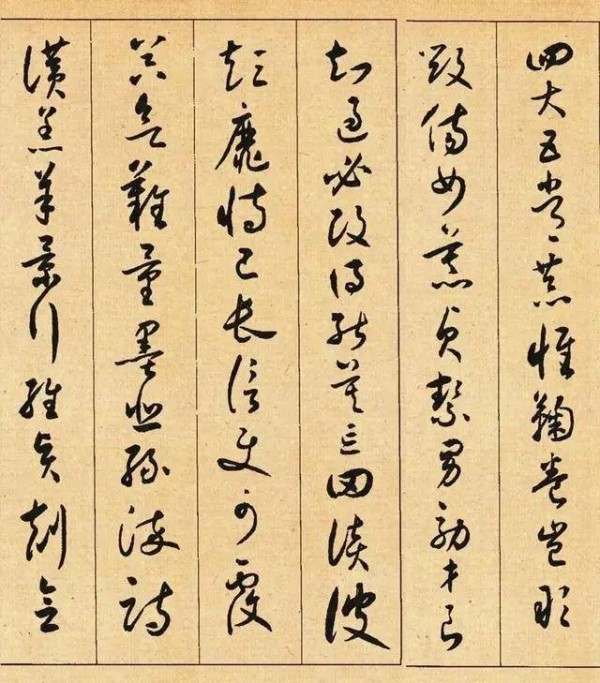 四大五常恭惟鞠養豈敢
毀傷女慕貞絜男効才良
知過必改得能莫忘罔談彼
短靡恃己長信使可覆
器欲難量墨悲絲染詩
讚羔羊景行維賢剋念